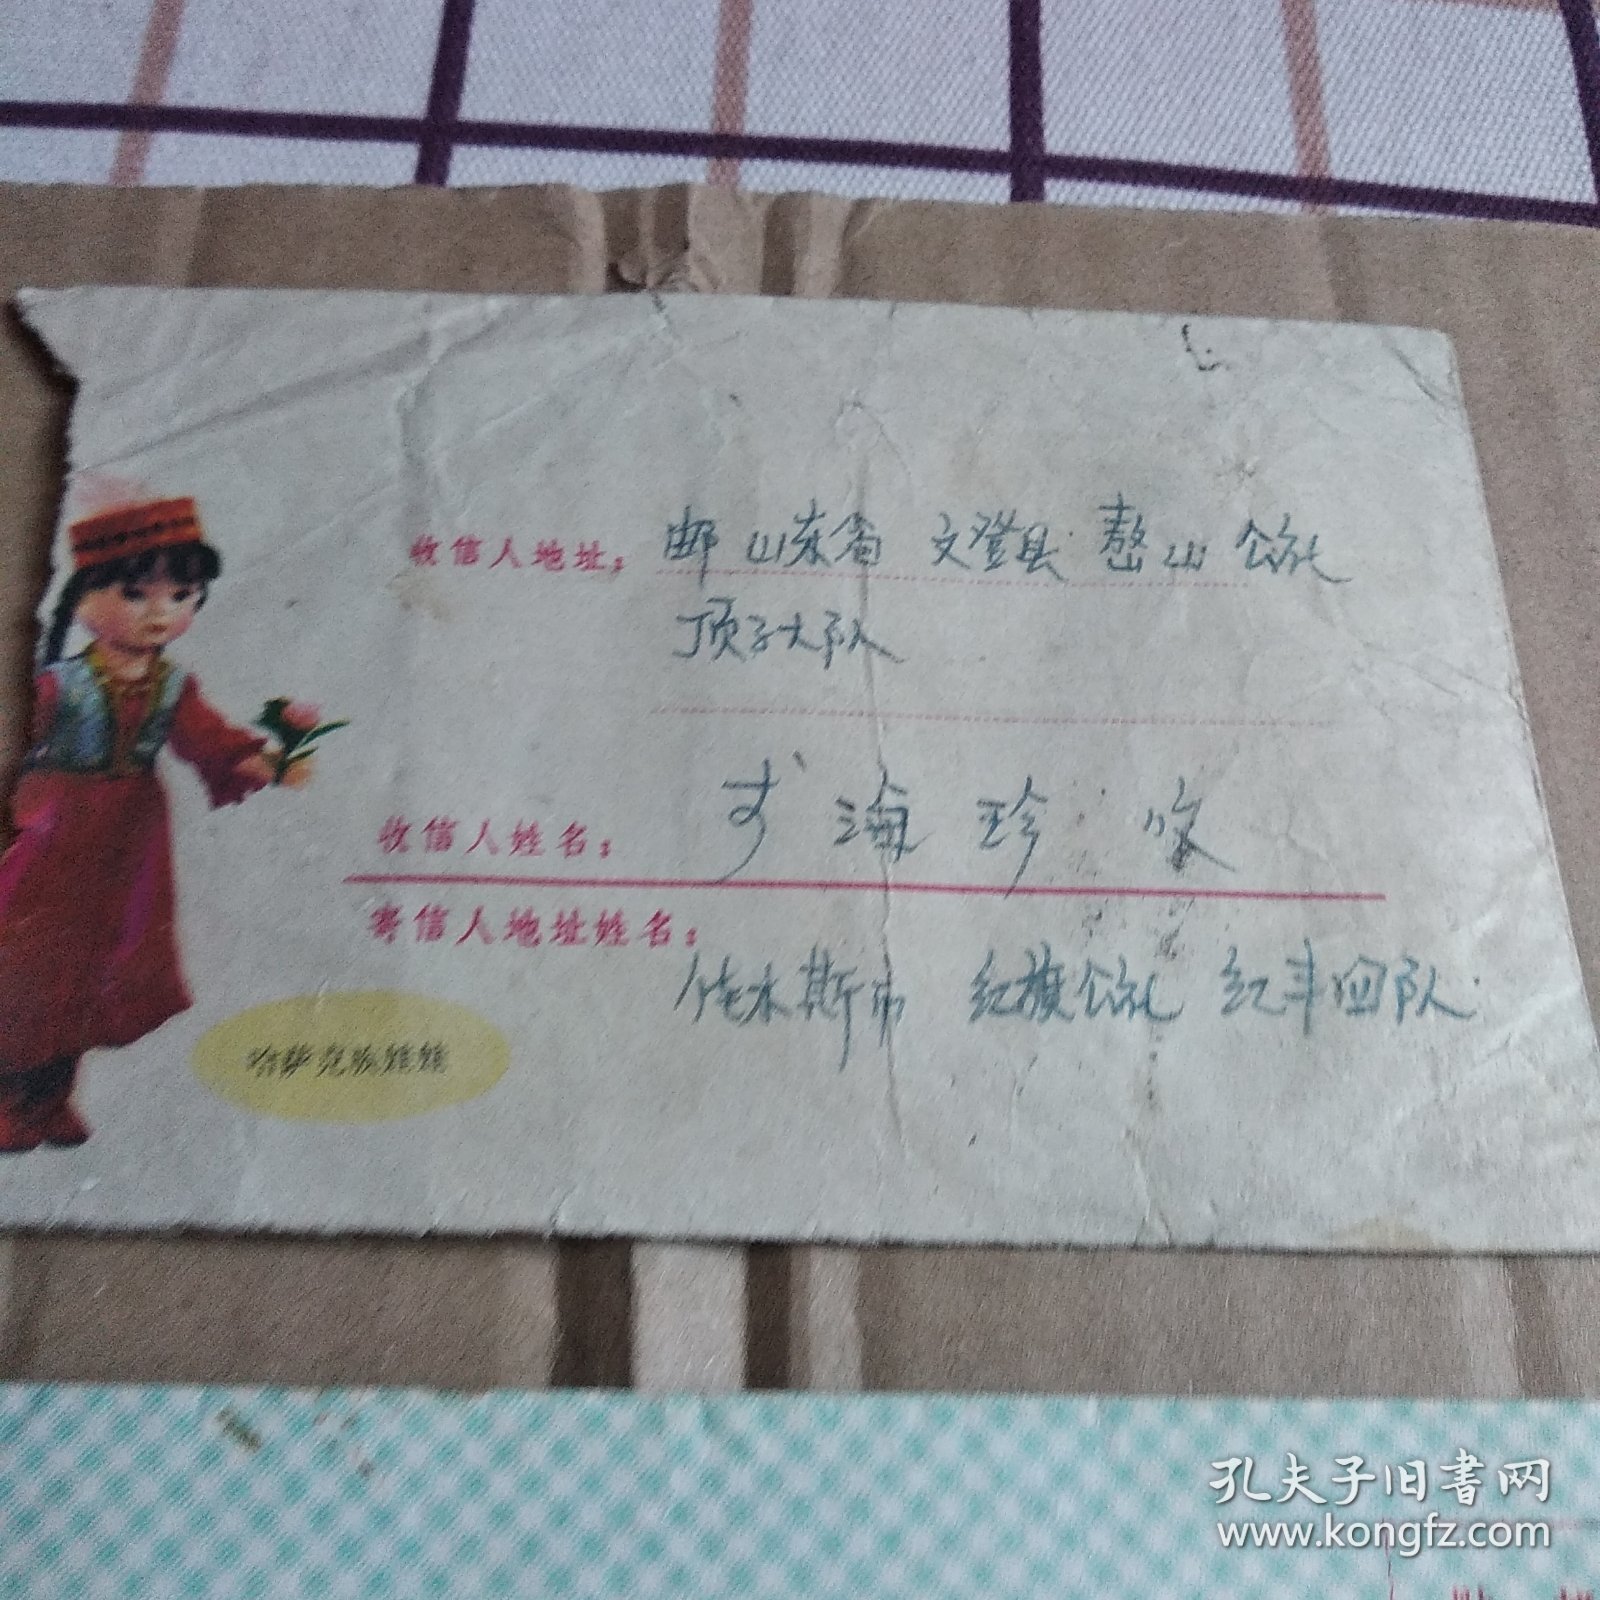 收信人地址：邮 山东省 文登县 嶅山 公社
顶子大队
收信人姓名：于海珍 收
寄信人地址姓名：
佳木斯市 红旗公社 红斗四队
哈萨克族娃娃
孔夫子旧书网
www.kongfz.com